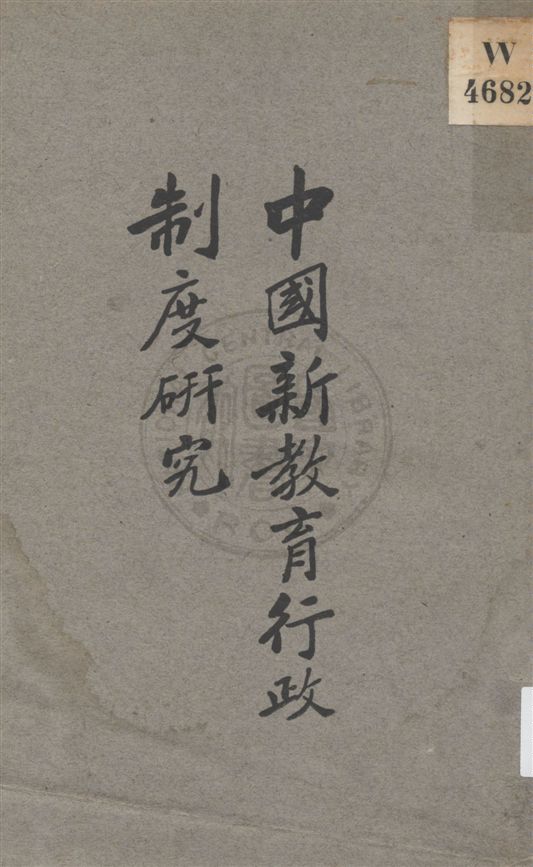 中國新教育行政
制度研究
W
4682